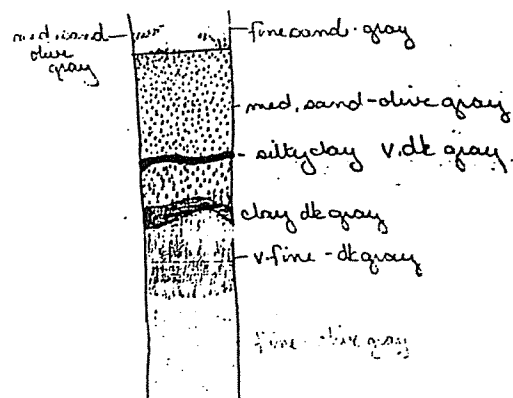 med. sand
olive
gray
fine sand - gray
med. sand - olive gray
silty clay v. dk gray
clay dk gray
v. fine - dk gray
fine - olive gray